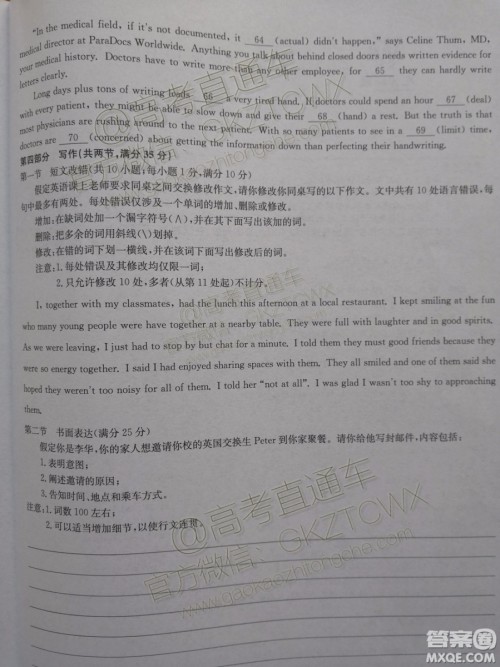 "In the medical field, if it's not documented, it 64 (actual) didn't happen," says Celine Thum, MD,
medical director at ParaDocs Worldwide. Anything you talk about behind closed doors needs written evidence for
your medical history. Doctors have to write more than any other employee, for 65 they can hardly write
letters clearly.
Long days plus tons of writing leads 66 a very tired hand. If doctors could spend an hour 67 (deal)
with every patient, they might be able to slow down and give their 68 (hand) a rest. But the truth is that
most physicians are rushing around to the next patient. With so many patients to see in a 69 (limit) time,
doctors are 70 (concerned) about getting the information down than perfecting their handwriting.
第四部分 写作(共两节,满分35分)
第一节 短文改错(共10小题;每小题1分,满分10分)
假定英语课上老师要求同桌之间交换修改作文,请你修改你同桌写的以下作文。文中共有10处语言错误,每
句中最多有两处。每处错误仅涉及一个单词的增加、删除或修改。
增加:在缺词处加一个漏字符号(∧),并在其下面写出该加的词。
删除:把多余的词用斜线(\)划掉。
修改:在错的词下划一横线,并在该词下面写出修改后的词。
注意:1.每处错误及其修改均仅限一词;
2.只允许修改10处,多者(从第11处起)不计分。
I, together with my classmates, had the lunch this afternoon at a local restaurant. I kept smiling at the fun
who many young people were have together at a nearby table. They were full with laughter and in good spirits.
As we were leaving, I just had to stop by but chat for a minute. I told them they must good friends because they
were so energy together. I said I had enjoyed sharing spaces with them. They all smiled and one of them said she
hoped they weren't too noisy for all of them. I told her "not at all". I was glad I wasn't too shy to approaching
them.
第二节 书面表达(满分25分)
假定你是李华,你的家人想邀请你校的英国交换生 Peter 到你家聚餐。请你给他写封邮件,内容包括:
1.表明意图;
2.阐述邀请的原因;
3.告知时间、地点和乘车方式。
注意:1.词数100左右;
2.可以适当增加细节,以使行文连贯。
@高考直通车
官方微信:GKZTCWX
www.gaokaozhitongche.com
答案圈
MXQE.COM